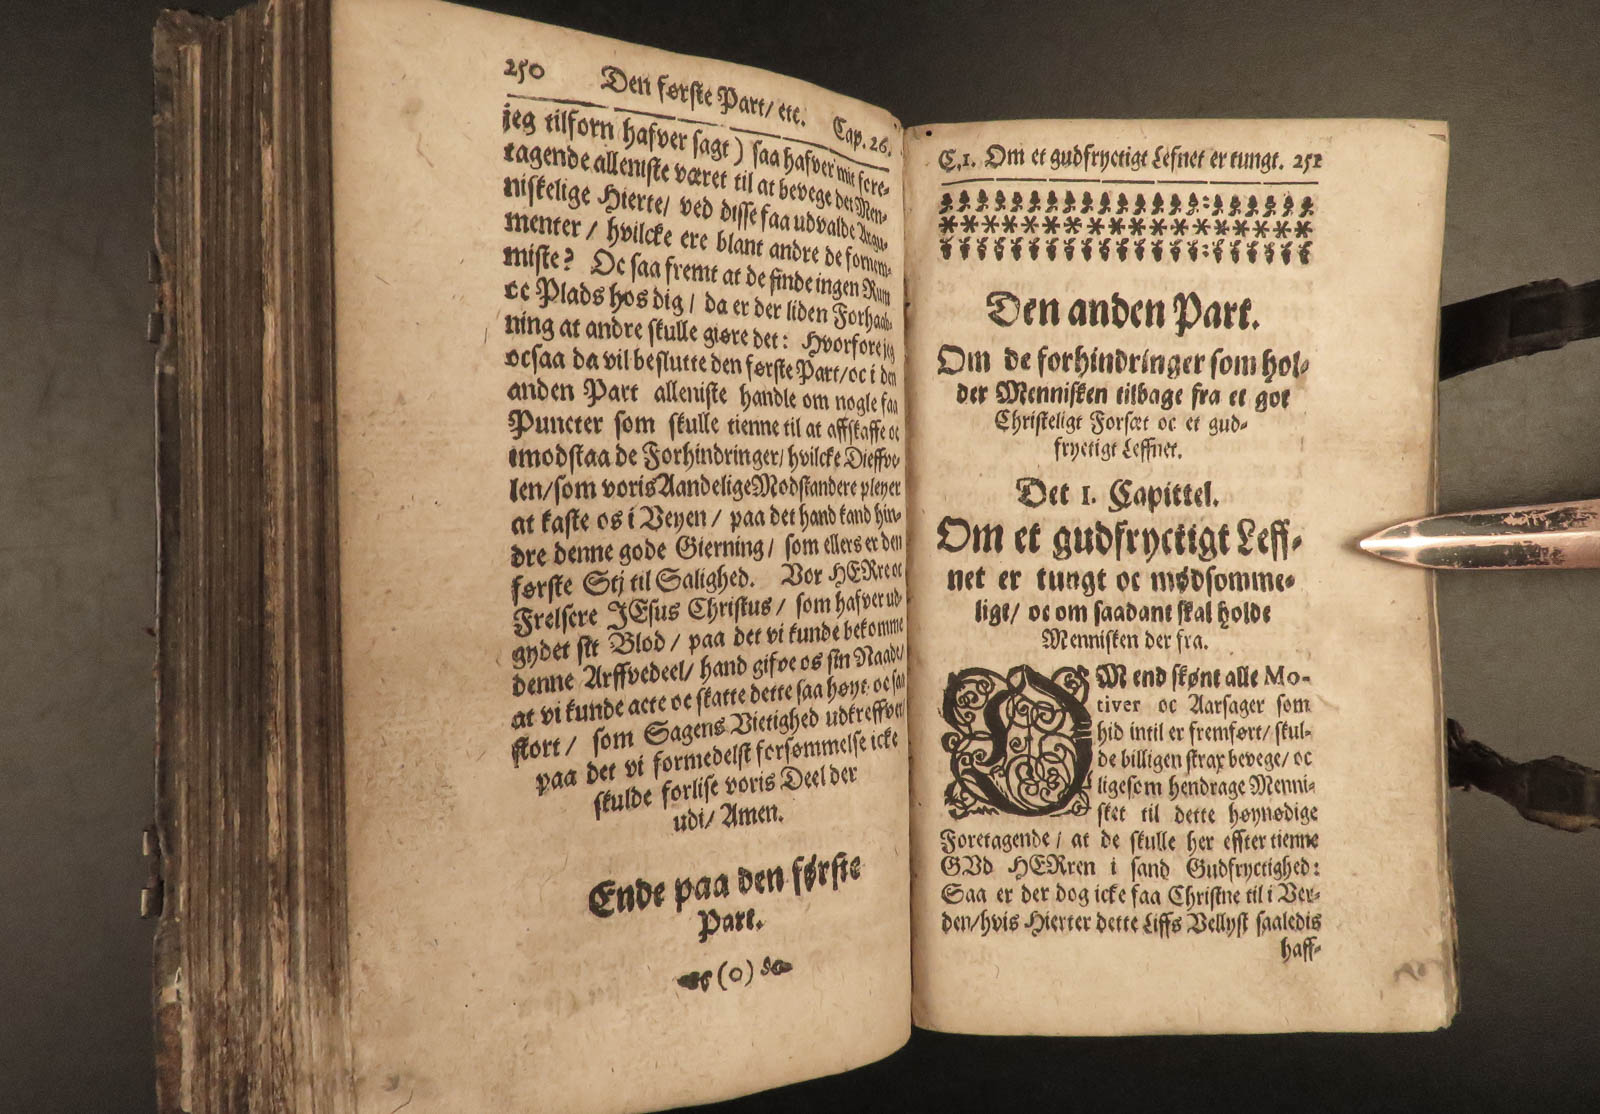 250 Den første Part/ etc. Cap. 26.
jeg tilforn hafver sagt) saa hafver mit fore-
tagende alleniste været til at bevege det Men-
niskelige Hierte/ ved disse faa udvalde Argu-
menter/ hvilcke ere blant andre de fornem-
miste? Oc saa fremt at de finde ingen Rum
oc Plads hos dig/ da er der liden Forhaab-
ning at andre skulle giøre det: Hvorfore jeg
ocsaa da vil beslutte den første Part/ oc i den
anden Part alleniste handle om nogle faa
Puncter som skulle tienne til at affskaffe oc
imodstaa de Forhindringer/ hvilcke Dieffve-
len/ som voris Aandelige Modstandere pleyer
at kaste os i Veyen/ paa det hand kand hin-
dre denne gode Gierning/ som ellers er den
første Stj til Salighed. Vor HERre oc
Frelsere JEsus Christus/ som hafver ud-
gydet sit Blod/ paa det vi kunde bekomme
denne Arffvedeel/ hand gifve os sin Naade/
at vi kunde acte oc skatte dette saa høyt oc saa
stort/ som Sagens Victighed udkreffver/
paa det vi formedelst forsømmelse icke
skulde forlise voris Deel der
udi/ Amen.
Ende paa den første
Part.
(o)
C.1. Om et gudfryctigt Lefnet er tungt. 251
Den anden Part.
Om de forhindringer som hol-
der Mennisken tilbage fra et got
Christeligt Forsæt oc et gud-
fryctigt Leffnet.
Det 1. Capittel.
Om et gudfryctigt Leff-
net er tungt oc mødsomme-
ligt/ oc om saadant skal holde
Mennisken der fra.
OM end skønt alle Mo-
tiver oc Aarsager som
hid intil er fremført/ skul-
de billigen strax bevege/ oc
ligesom hendrage Menni-
sket til dette høynødige
Foretagende/ at de skulle her effter tienne
GUd HERren i sand Gudfryctighed:
Saa er der dog icke faa Christne til i Ver-
den/ hvis Hierter dette Liffs Vellyst saaledis
haff-